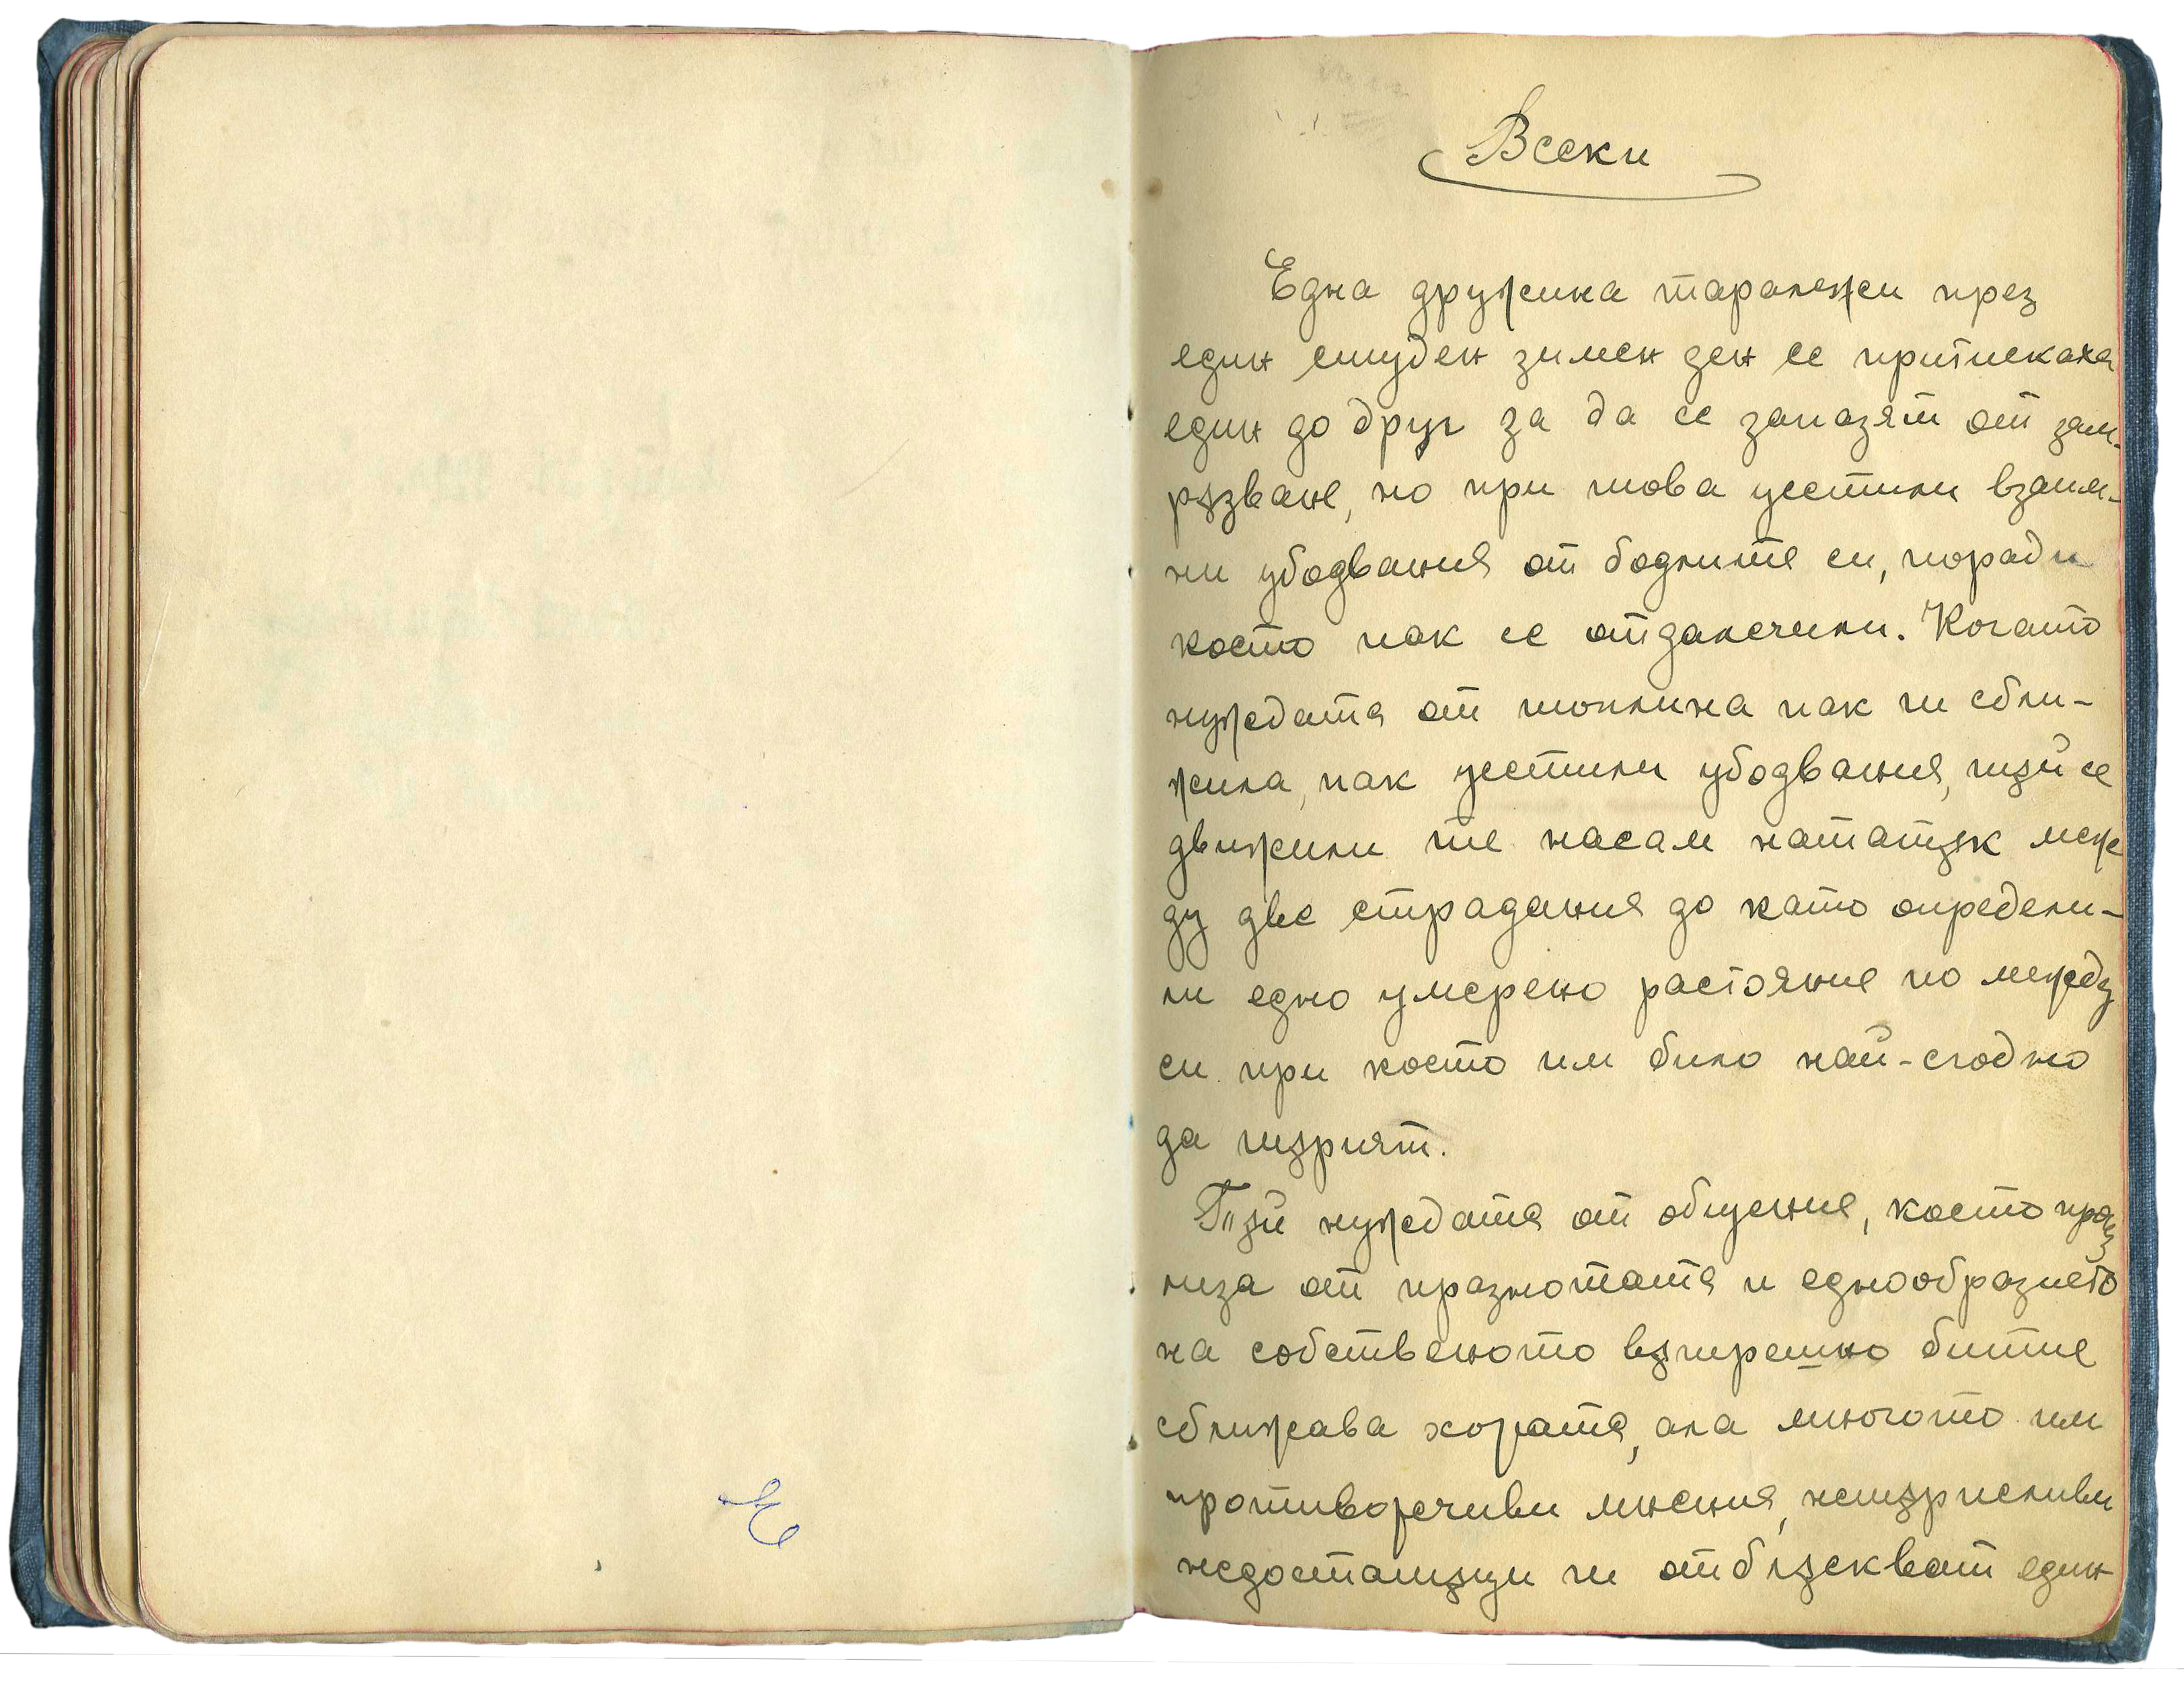 Всеки
Една дружина таралежи през
един студен зимен ден се притискаха
един до друг за да се запазят от зам-
ръзване, но при това усетили взаим-
ни убодвания от бодлите си, поради
което пак се отдалечили. Когато
нуждата от топлина пак ги сбли-
жила, пак усетили убодвания, тъй се
движили те насам нататък меж
ду две страдания до като определи-
ли едно умерено растояние по между
си при което им било най-сгодно
да търпят.
Тъй нуждата от общения, което произ
лиза от празнотата и еднообразието
на собственото вътрешно битие
сближава хората, ала многото им
противоречиви мнения, нетърпеливи
недостатъци ги отблъскват един
Е